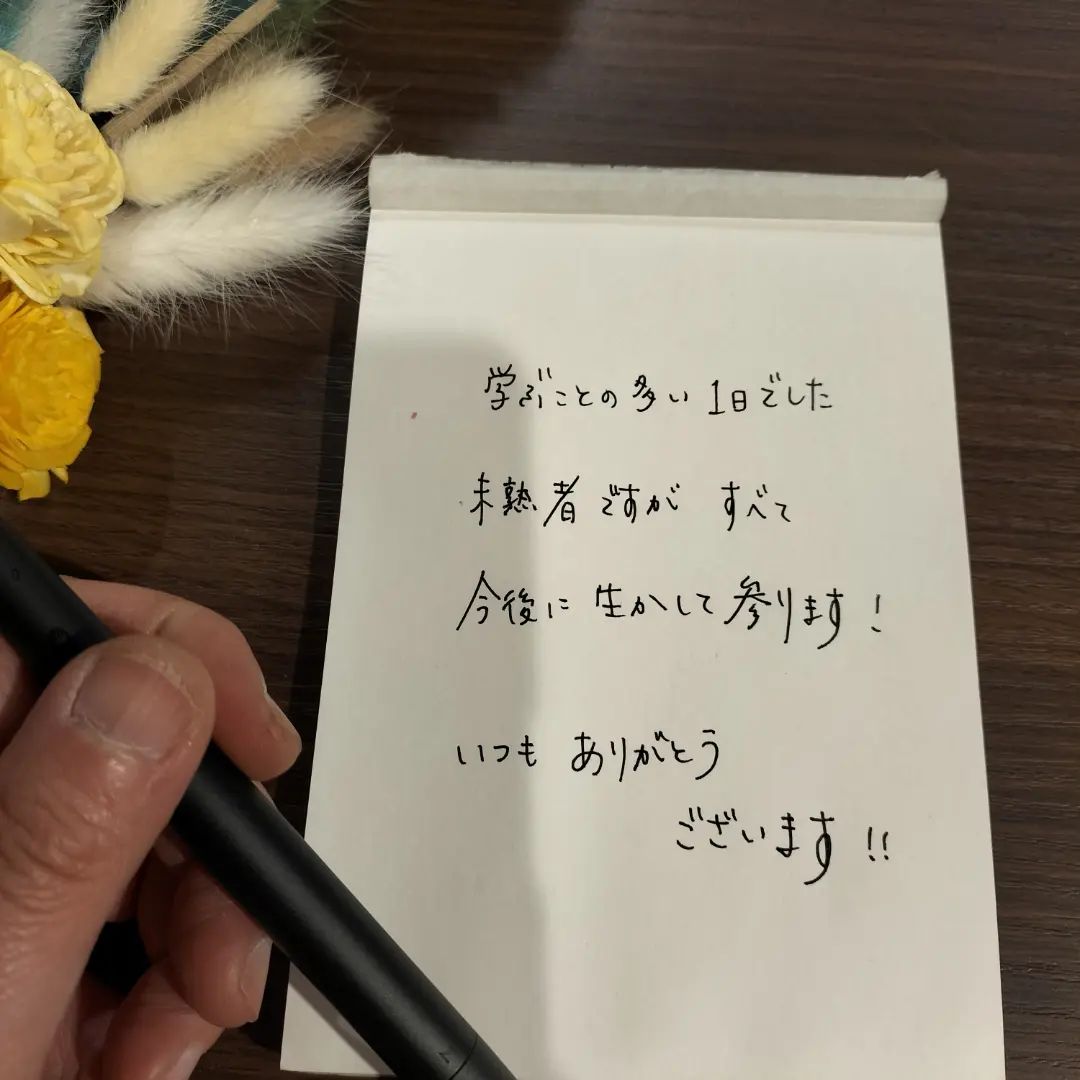 学ぶことの多い1日でした
未熟者ですが すべて
今後に生かして参ります!
いつも ありがとう
ございます!!